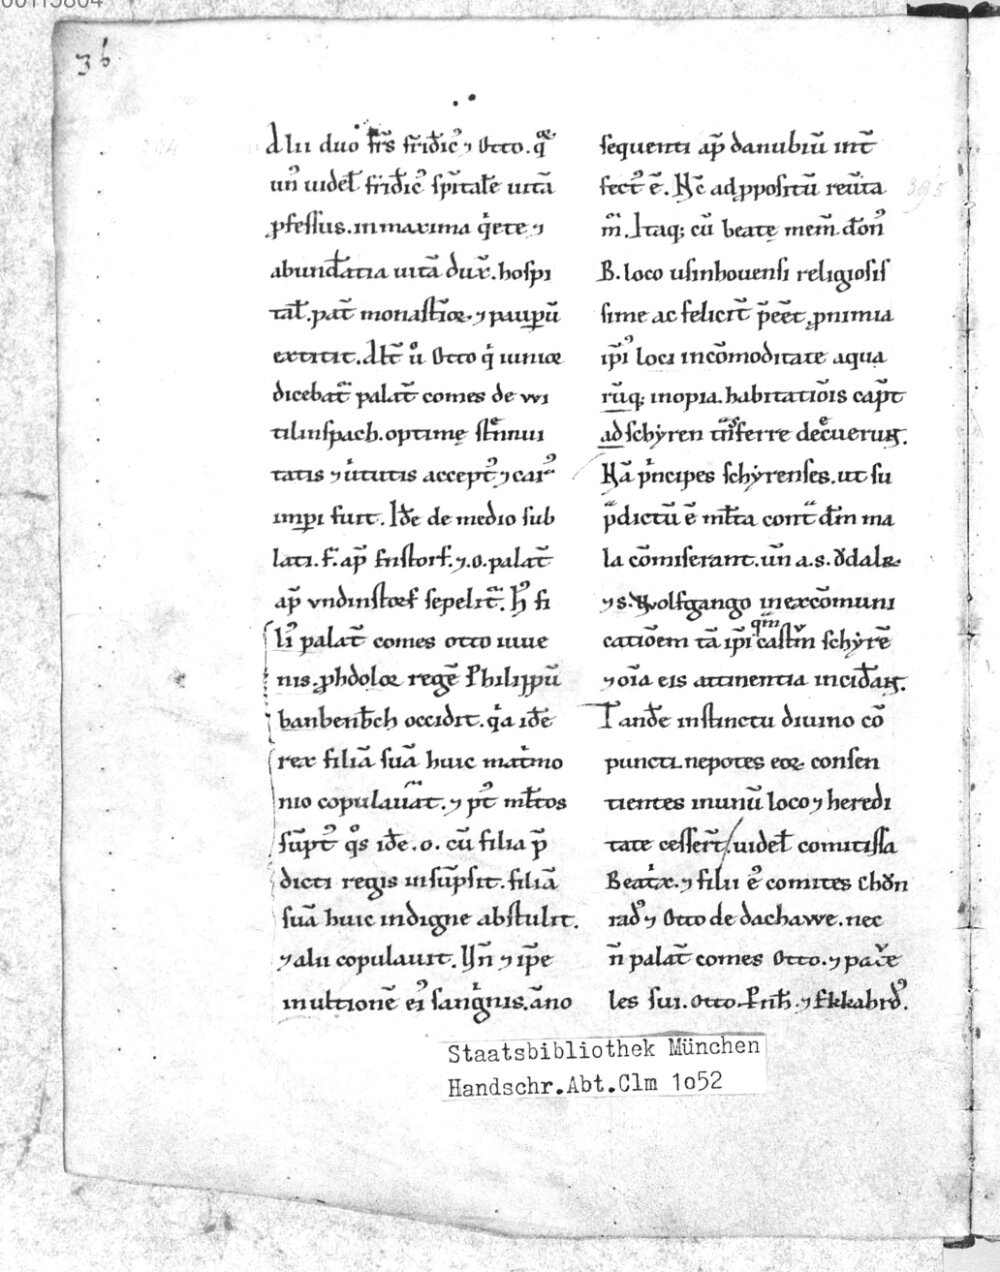 36
Alii duo fr̄s fridic᷒ ⁊ Otto. qͦꝝ
un᷒ uidel̄ fridic᷒ sp̄itale᷒ uitā
ꝓfessus. in maxima qͥete ⁊
abundātia uitā dux̄. hospi
tal̄. pat̄ monast̄ioꝝ. ⁊ paupū
extitit. Alt̄ u̾ Otto qͥ iunioꝛ
dicebat᷑ palat̄ comes de wi
tilinspach. optime st̾nnui
tatis ⁊ uͥtutis accept᷒ ⁊ car᷒
impi fuit. Id̄e de medio sub
lati. f. ap̄ fristorf. ⁊. o. palat̄
ap̄ vndinstorf sepelit᷑. H᷒ fi
li᷒ palat̄ comes otto iuue
nis. ꝓhdoloꝛ regē Philippū
banbenb̄ch occidit. qͣa id̄e
rex filiā suā huic matͥmo
nio copulauat. ⁊ p᷒t ml̄tos
sūpt᷒ qͦs id̄e. o. cū filia p̄
dicti regis insūpsit. filiā
suā huic indigne abstulit.
⁊ alii copulauit. Hn̄ ⁊ ip̄e
in ultionē ei᷒ sangͥnis. āno
sequenti ap̄ danubiū int̄
fect᷒ ē. Hc̄ ad ꝓpositū reūta
m᷑. Itaq; cū beatę mem̄ d̄on᷒
B. loco usinhouensi religiosis
sime ac felicit̄ p̄eēt ꝓ nimia
ip̄i᷒ loci incōmoditate aqua
rūq; inopia. habitatiōis cap̄t
ad schẏren tn̄sferre decͤuerunt.
Nā pͥncipes schẏrenses. ut su
p̄dictū ē ml̄ta cont̄ d̄m ma
la cōmiserant. un̄ a. s. ơdalꝛ.
⁊ s. Wolfgango in excōmuni
catiōem tā ip̄i qm̄ castrm̄ schẏrē
⁊ oīa eis attinentia incid̄ant.
Tand̄e instinctu diuino cō
puncti. nepotes eoꝝ consen
tientes in unū loco ⁊ heredi
tate cessert̄. uidel̄ comitissa
Beatͥx. ⁊ filii e᷒ comites Chơn
rad᷒ ⁊ Otto de dachawe. nec
n̄ palat̄ comes Otto. ⁊ patͬe
les sui. Otto. Frih̄. ⁊ Ekkahrd᷒.
Staatsbibliothek München
Handschr.Abt.Clm 1o52